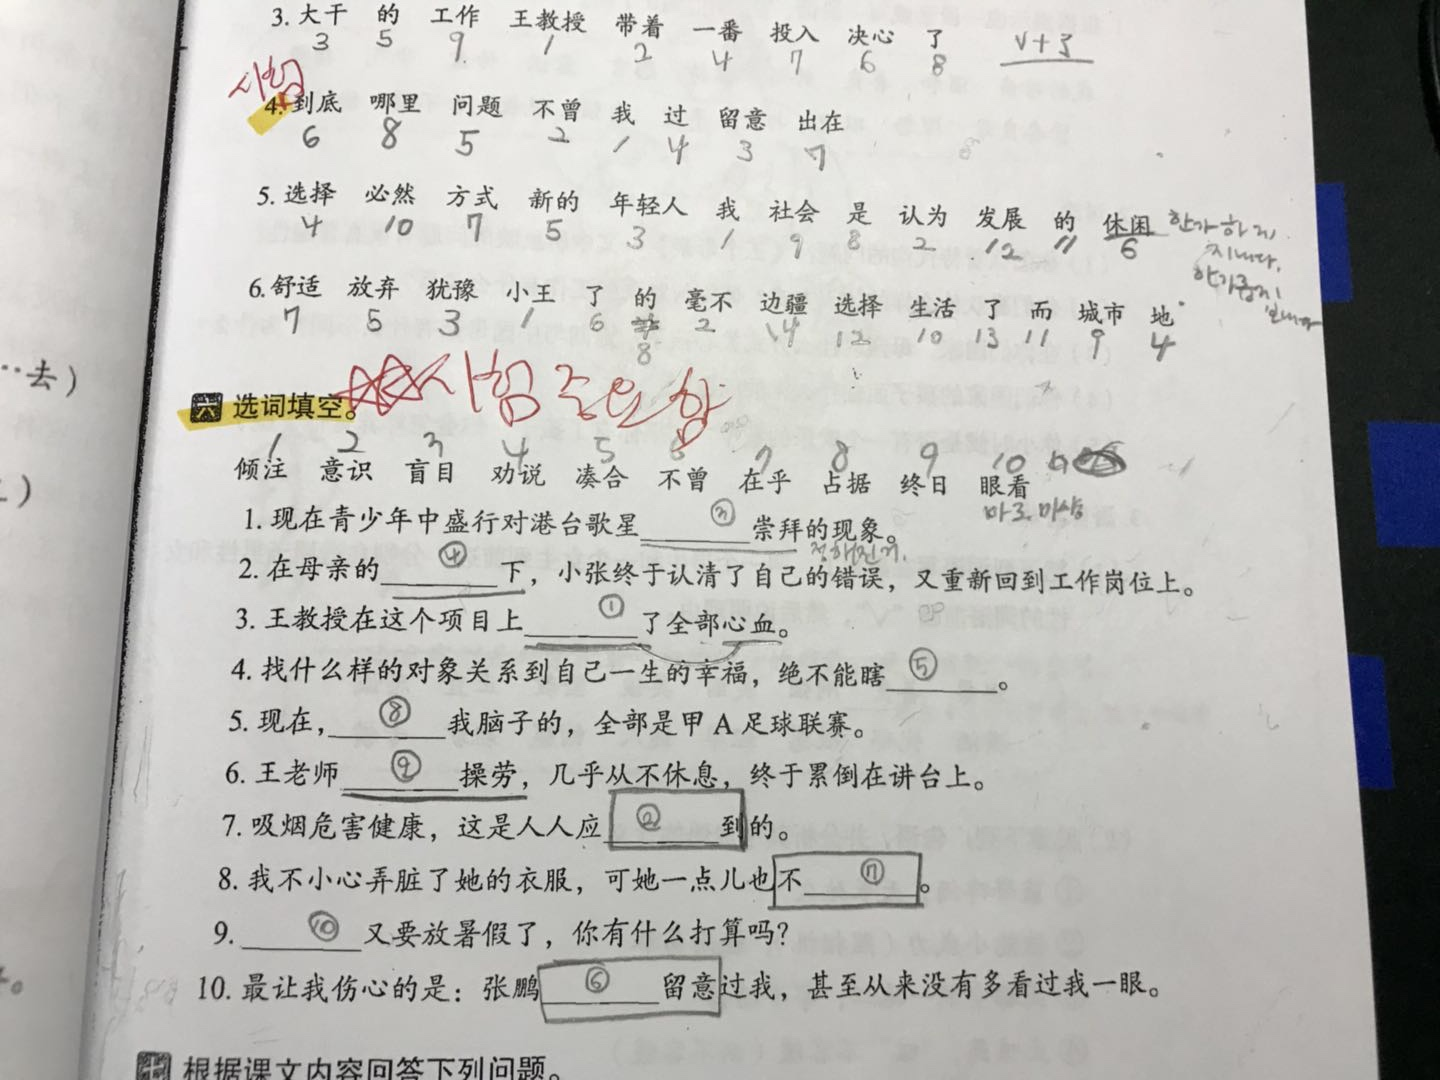 3. 大干 的 工作 王教授 带着 一番 投入 决心 了 V+了
3 5 9 1 2 4 7 6 8
시험
4. 到底 哪里 问题 不曾 我 过 留意 出在
6 8 5 2 1 4 3 7
5. 选择 必然 方式 新的 年轻人 我 社会 是 认为 发展 的 休闲 한가하게 지내다.
4 10 7 5 3 1 9 8 2 12 11 6
6. 舒适 放弃 犹豫 小王 了 的 毫不 边疆 选择 生活 了 而 城市 地
7 5 3 1 6 8 2 14 12 10 13 11 9 4
…去)
六 选词填空。 시험
1 2 3 4 5 6 7 8 9 10
倾注 意识 盲目 劝说 凑合 不曾 在乎 占据 终日 眼看
1. 现在青少年中盛行对港台歌星 ③ 崇拜的现象。
2. 在母亲的 ④ 下，小张终于认清了自己的错误，又重新回到工作岗位上。
3. 王教授在这个项目上 ① 了全部心血。
4. 找什么样的对象关系到自己一生的幸福，绝不能瞎 ⑤ 。
5. 现在， ⑧ 我脑子的，全部是甲A足球联赛。
6. 王老师 ⑨ 操劳，几乎从不休息，终于累倒在讲台上。
7. 吸烟危害健康，这是人人应 ② 到的。
8. 我不小心弄脏了她的衣服，可她一点儿也不 ⑦ 。
9. ⑩ 又要放暑假了，你有什么打算吗？
10. 最让我伤心的是：张鹏 ⑥ 留意过我，甚至从来没有多看过我一眼。
七 根据课文内容回答下列问题。